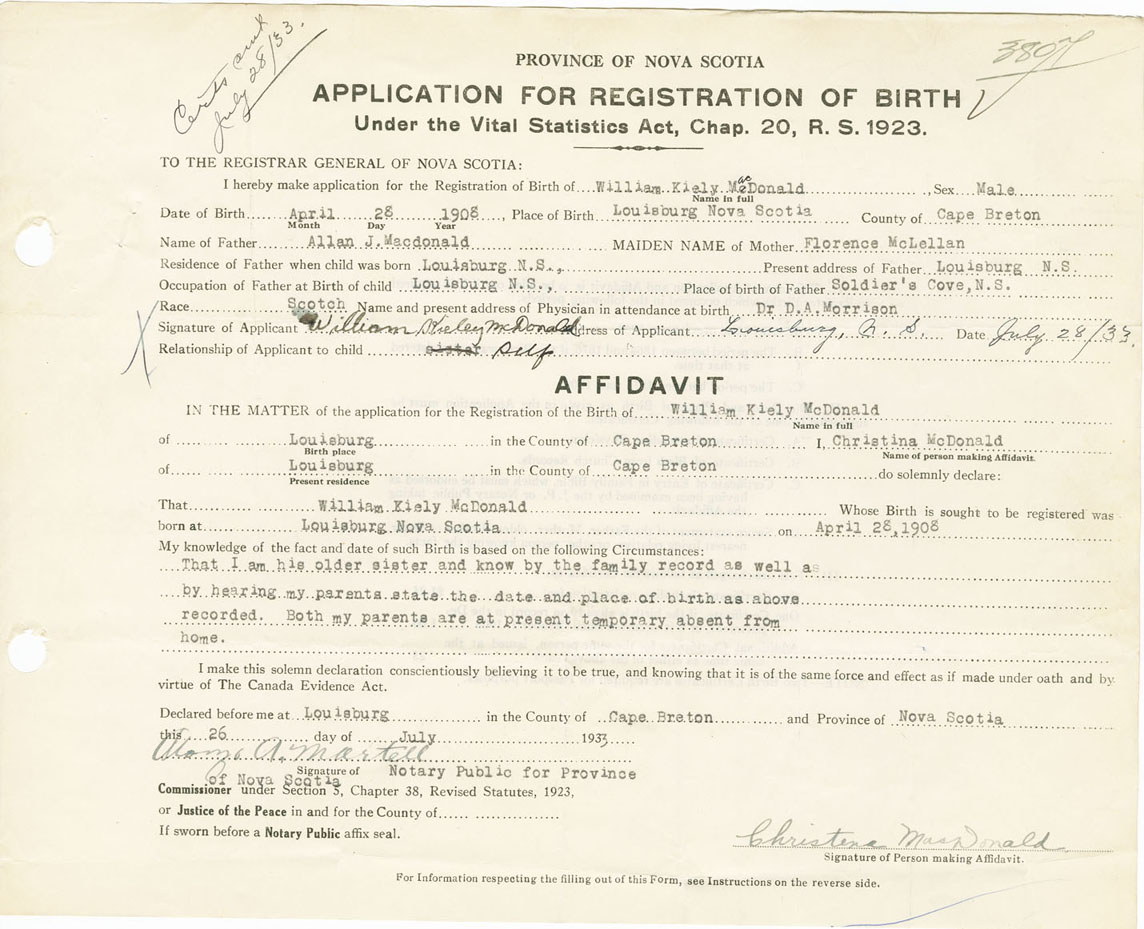 Certs sent
July 28/33.
3807
PROVINCE OF NOVA SCOTIA
APPLICATION FOR REGISTRATION OF BIRTH
Under the Vital Statistics Act, Chap. 20, R. S. 1923.
TO THE REGISTRAR GENERAL OF NOVA SCOTIA:
I hereby make application for the Registration of Birth of William Kiely MacDonald, Sex Male
Name in full
Date of Birth April 28 1908, Place of Birth Louisburg Nova Scotia County of Cape Breton
Month Day Year
Name of Father Allan J.Macdonald MAIDEN NAME of Mother Florence McLellan
Residence of Father when child was born Louisburg N.S., Present address of Father Louisburg N.S.
Occupation of Father at Birth of child Louisburg N.S., Place of birth of Father Soldier's Cove,N.S.
Race Scotch Name and present address of Physician in attendance at birth Dr D.A.Morrison
Signature of Applicant William Kieley McDonald dress of Applicant Louisburg, N. S. Date July 28/33.
Relationship of Applicant to child sister Self
AFFIDAVIT
IN THE MATTER of the application for the Registration of the Birth of William Kiely McDonald
Name in full
of Louisburg in the County of Cape Breton I, Christina McDonald
Birth place Name of person making Affidavit.
of Louisburg in the County of Cape Breton do solemnly declare:
Present residence
That William Kiely McDonald Whose Birth is sought to be registered was
born at Louisburg Nova Scotia on April 28,1908
My knowledge of the fact and date of such Birth is based on the following Circumstances:
That I am his older sister and know by the family record as well as
by hearing my parents state the date and place of birth as above
recorded. Both my parents are at present temporary absent from
home.
I make this solemn declaration conscientiously believing it to be true, and knowing that it is of the same force and effect as if made under oath and by
virtue of The Canada Evidence Act.
Declared before me at Louisburg in the County of Cape Breton and Province of Nova Scotia
this 26 day of July 1933
A. Martell
Signature of Notary Public for Province
of Nova Scotia
Commissioner under Section 3, Chapter 38, Revised Statutes, 1923,
or Justice of the Peace in and for the County of
If sworn before a Notary Public affix seal.
Christena MacDonald
Signature of Person making Affidavit.
For Information respecting the filling out of this Form, see Instructions on the reverse side.